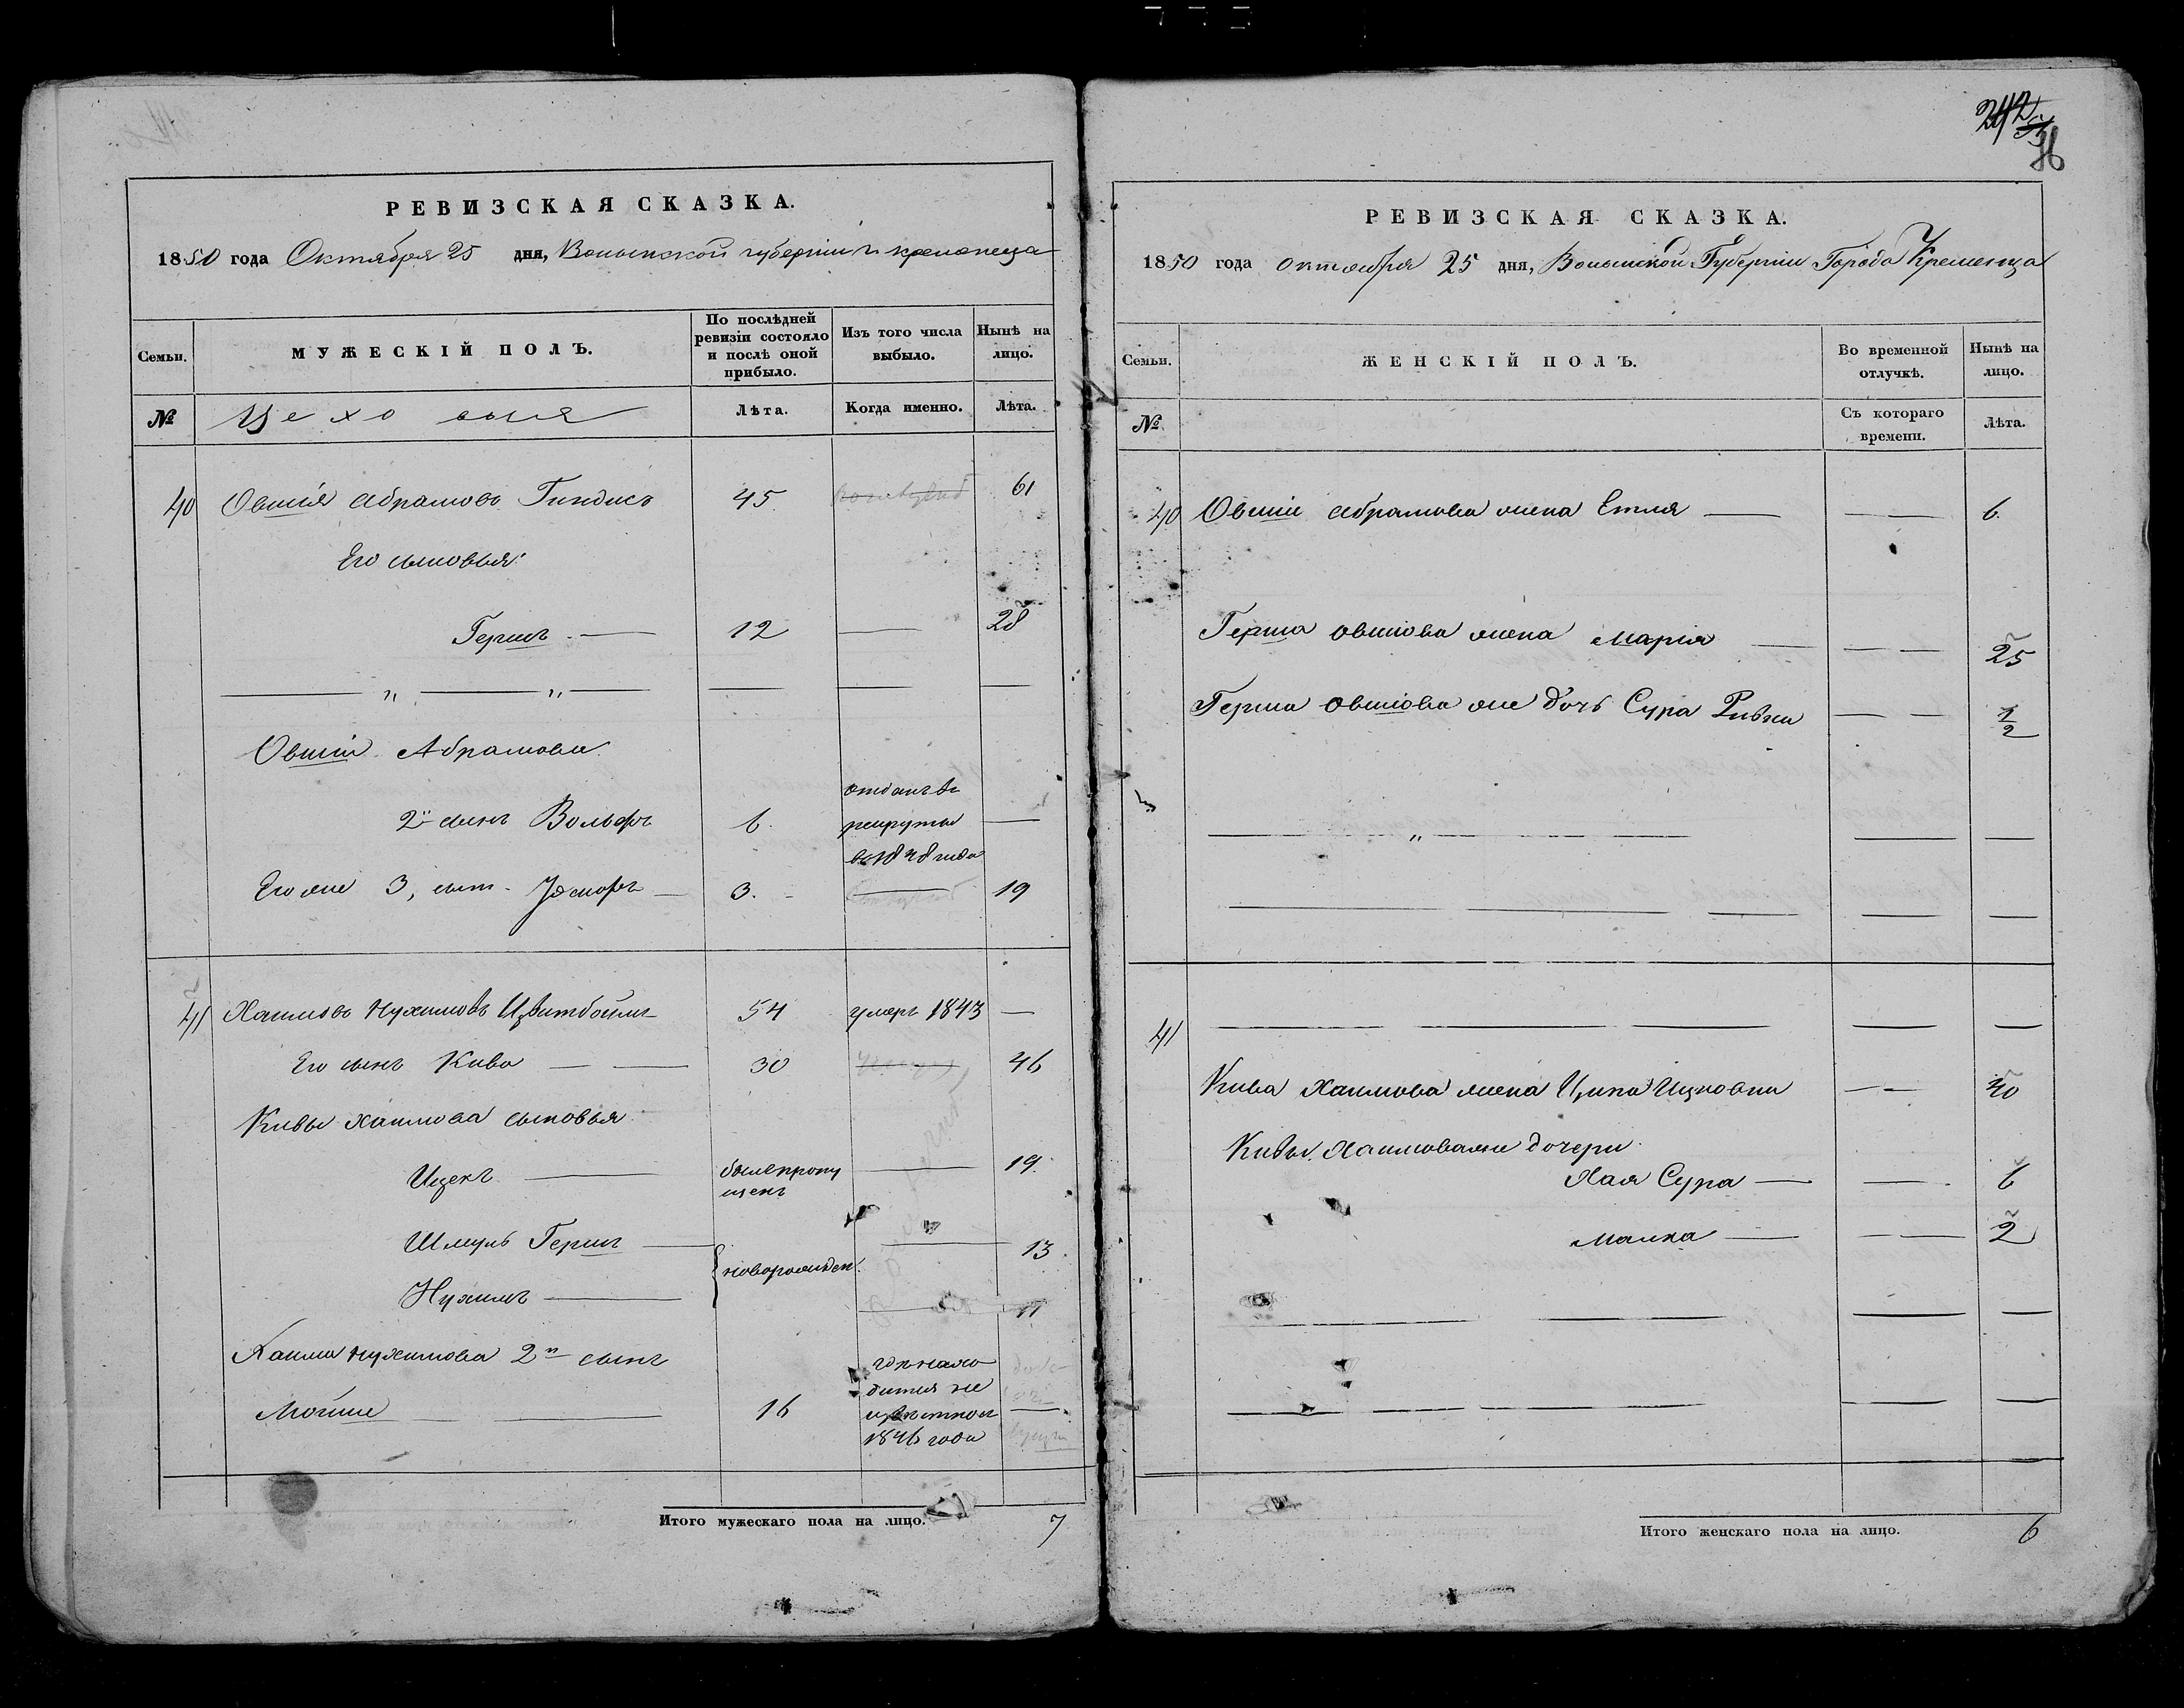 РЕВИЗСКАЯ СКАЗКА.
1850 года Октября 25 дня, Волынской губерніи г. кременеца
Семьи. МУЖЕСКІЙ ПОЛЪ. По послѣдней ревизіи состояло и послѣ оной прибыло. Изъ того числа выбыло. Нынѣ на лицо.
№ Лѣта. Когда именно. Лѣта.
40 Овшія Абрамовъ 45 61
Его сыновья
Гершъ 12 28
Овшія Абрамова
2й сынъ Вольфъ 6 отданъ въ рекруты въ 1848 года
Его же 3, сынъ 3. 19
41 Хаимовъ Нухимовъ 54 умеръ 1843
Его сынъ Кива 30 46
Кивы Хаимова сыновья
Ицекъ былъ пропущенъ 19
Шмуль Гершъ 13
новорожден.
Нухимъ 11
Хаима Нухимова 2й сынъ
Мойше 16 1846 года
Итого мужескаго пола на лицо. 7
242
36
РЕВИЗСКАЯ СКАЗКА.
1850 года октября 25 дня, Волынской Губерніи Города Кременца
Семьи. ЖЕНСКІЙ ПОЛЪ. Во временной отлучкѣ. Нынѣ на лицо.
№ Съ котораго времени. Лѣта.
40 Овшіи Абрамова жена Етля 6
Герша Овшіова жена Марія 25
Герша Овшіова же дочь Сура Ривка 1/2
41
Кива Хаимова жена Ципа Ицковна 40
Кивы Хаимова же дочери
Хая Сура 6
Малка 2
Итого женскаго пола на лицо. 6